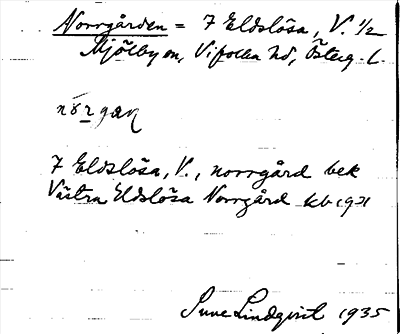 Norrgården = 7 Eldslösa, V. 1/2
Mjölby sn, Vifolka hd, Österg. l.
7 Eldslösa, V., norrgård bek
Västra Eldslösa Norrgård kb 1921
Sune Lindqvist 1935